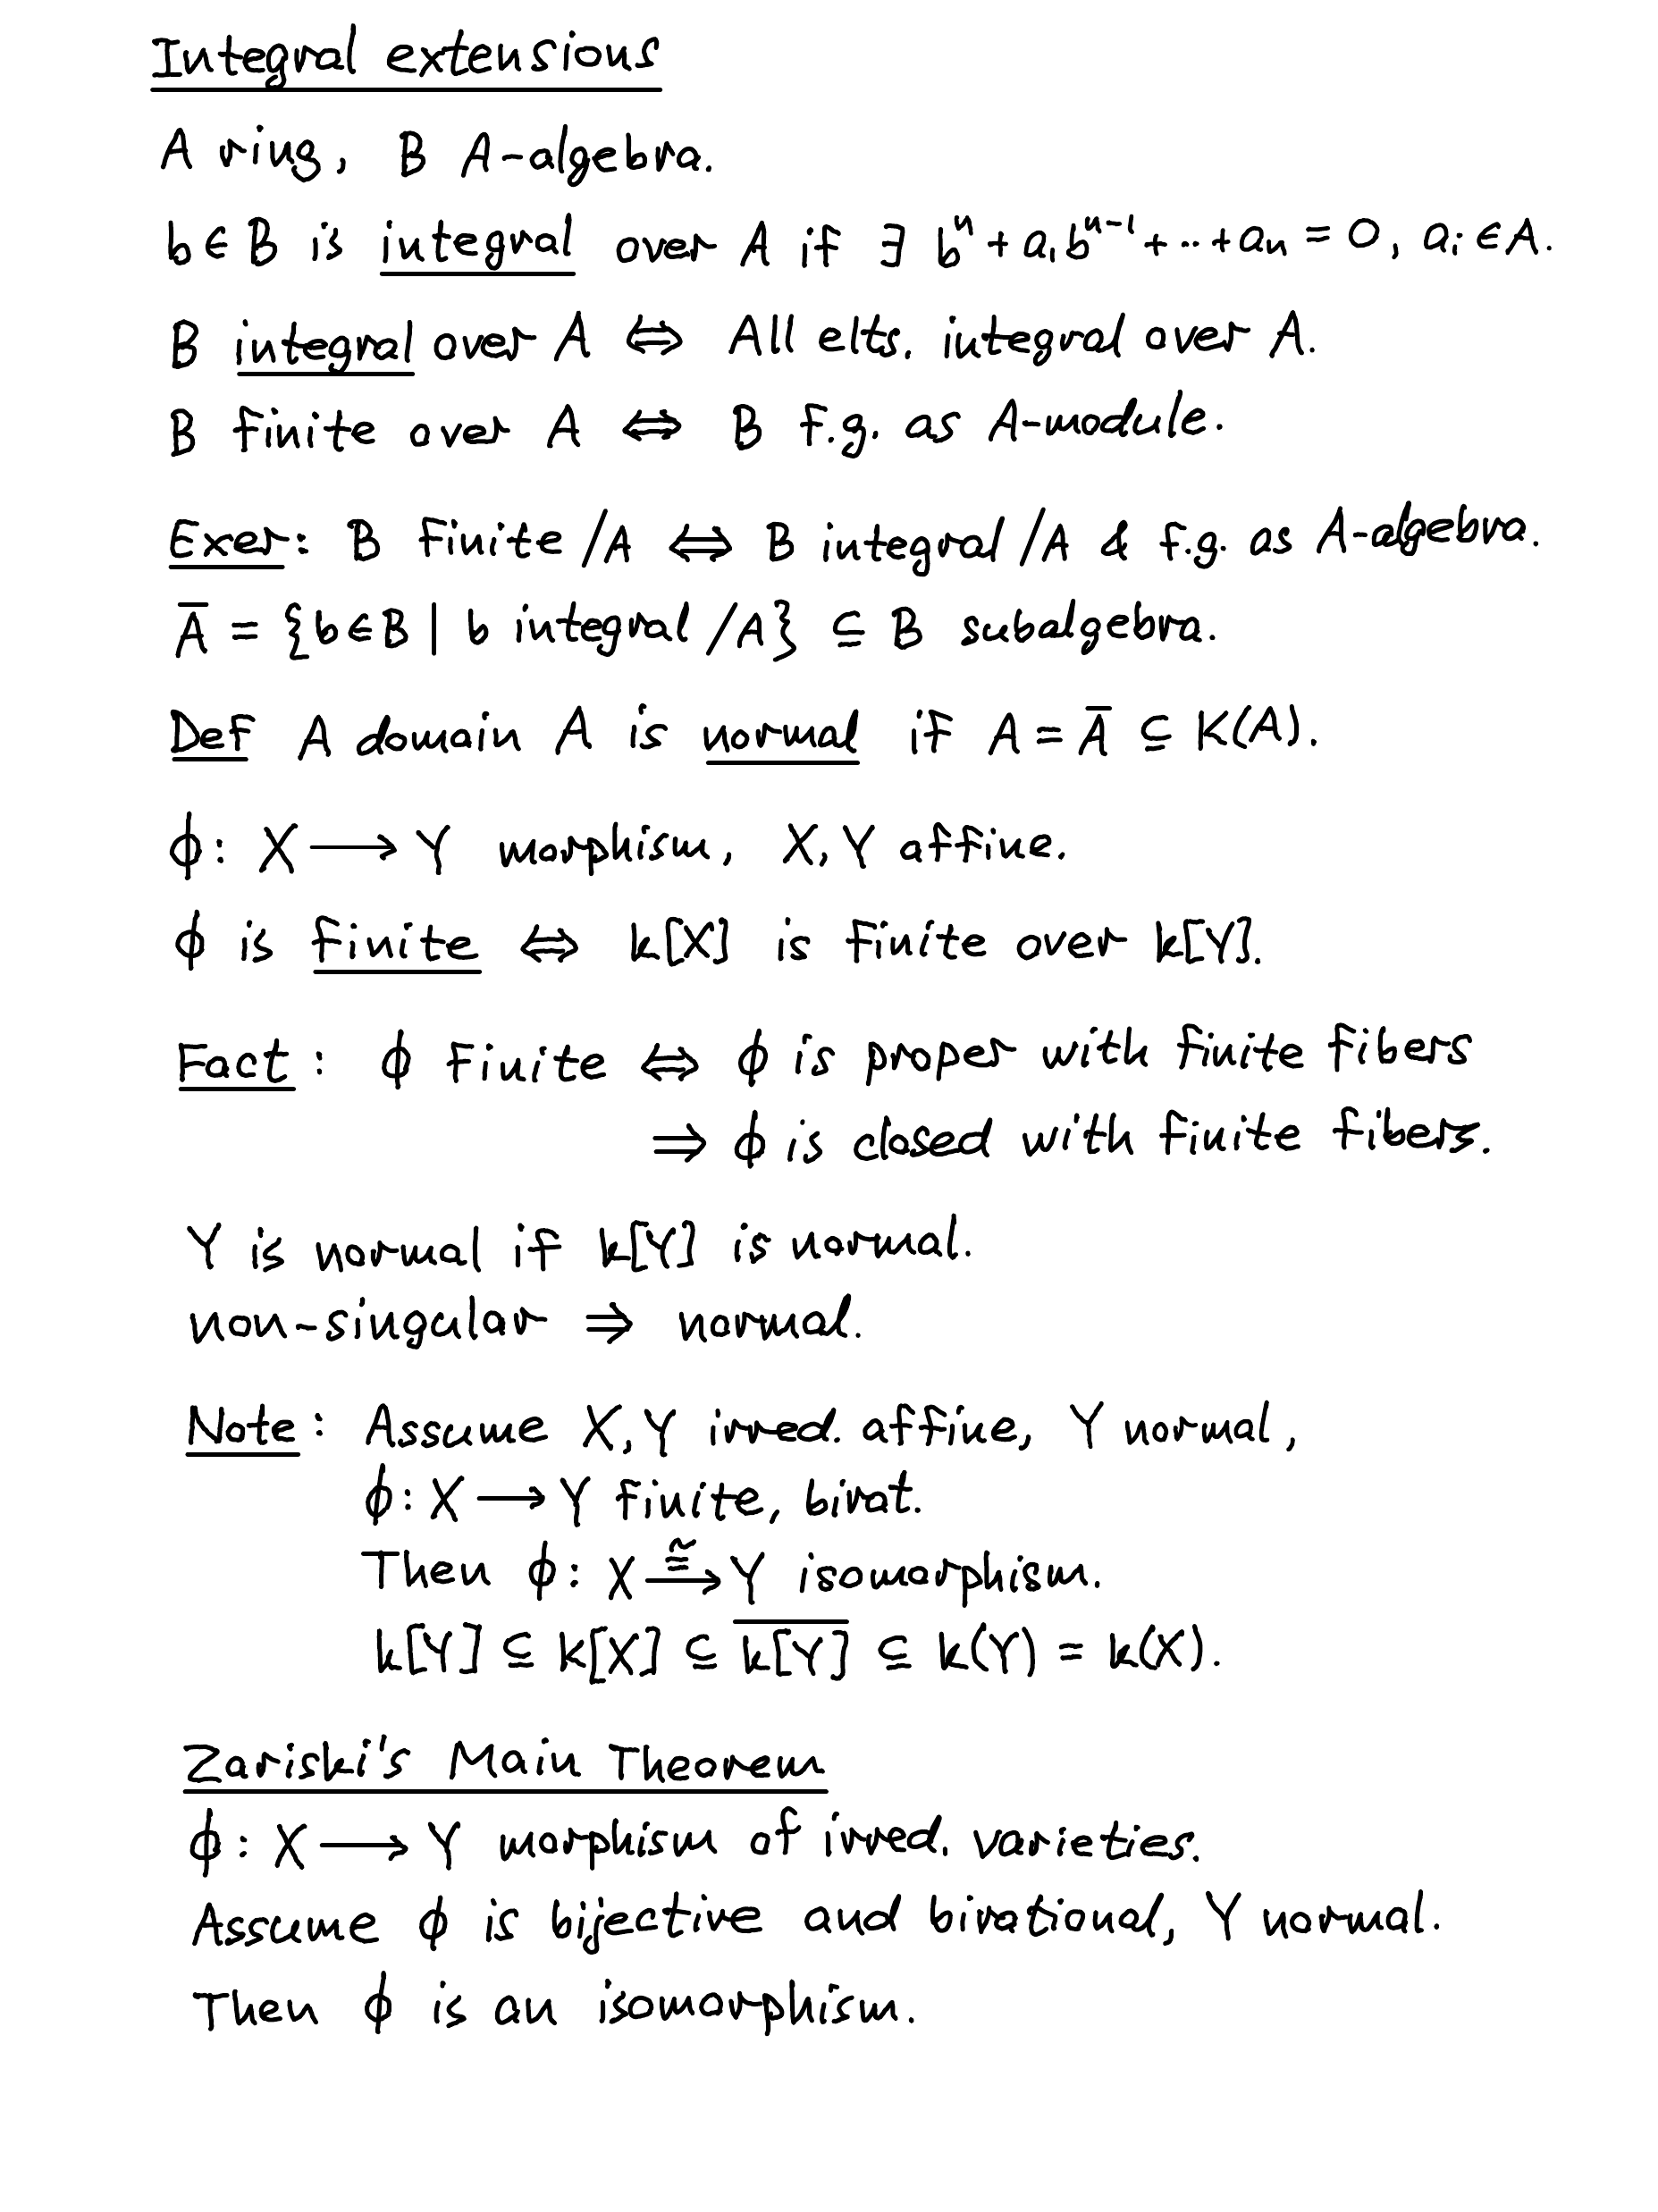 Integral extensions
A ring, B A-algebra.
b ∈ B is integral over A if ∃ bⁿ + a₁bⁿ⁻¹ + ⋯ + aₙ = 0, aᵢ ∈ A.
B integral over A ⇔ All elts. integral over A.
B finite over A ⇔ B f.g. as A-module.
Exer: B finite/A ⇔ B integral/A & f.g. as A-algebra.
A̅ = {b ∈ B | b integral/A} ⊆ B subalgebra.
Def A domain A is normal if A = A̅ ⊆ K(A).
ϕ: X ⟶ Y morphism, X, Y affine.
ϕ is finite ⇔ k[X] is finite over k[Y].
Fact: ϕ finite ⇔ ϕ is proper with finite fibers
⇒ ϕ is closed with finite fibers.
Y is normal if k[Y] is normal.
non-singular ⇒ normal.
Note: Assume X, Y irred. affine, Y normal,
ϕ: X ⟶ Y finite, birat.
Then ϕ: X ≅⟶ Y isomorphism.
k[Y] ⊆ k[X] ⊆ k̅[̅Y̅]̅ ⊆ k(Y) = k(X).
Zariski's Main Theorem
ϕ: X ⟶ Y morphism of irred. varieties.
Assume ϕ is bijective and birational, Y normal.
Then ϕ is an isomorphism.